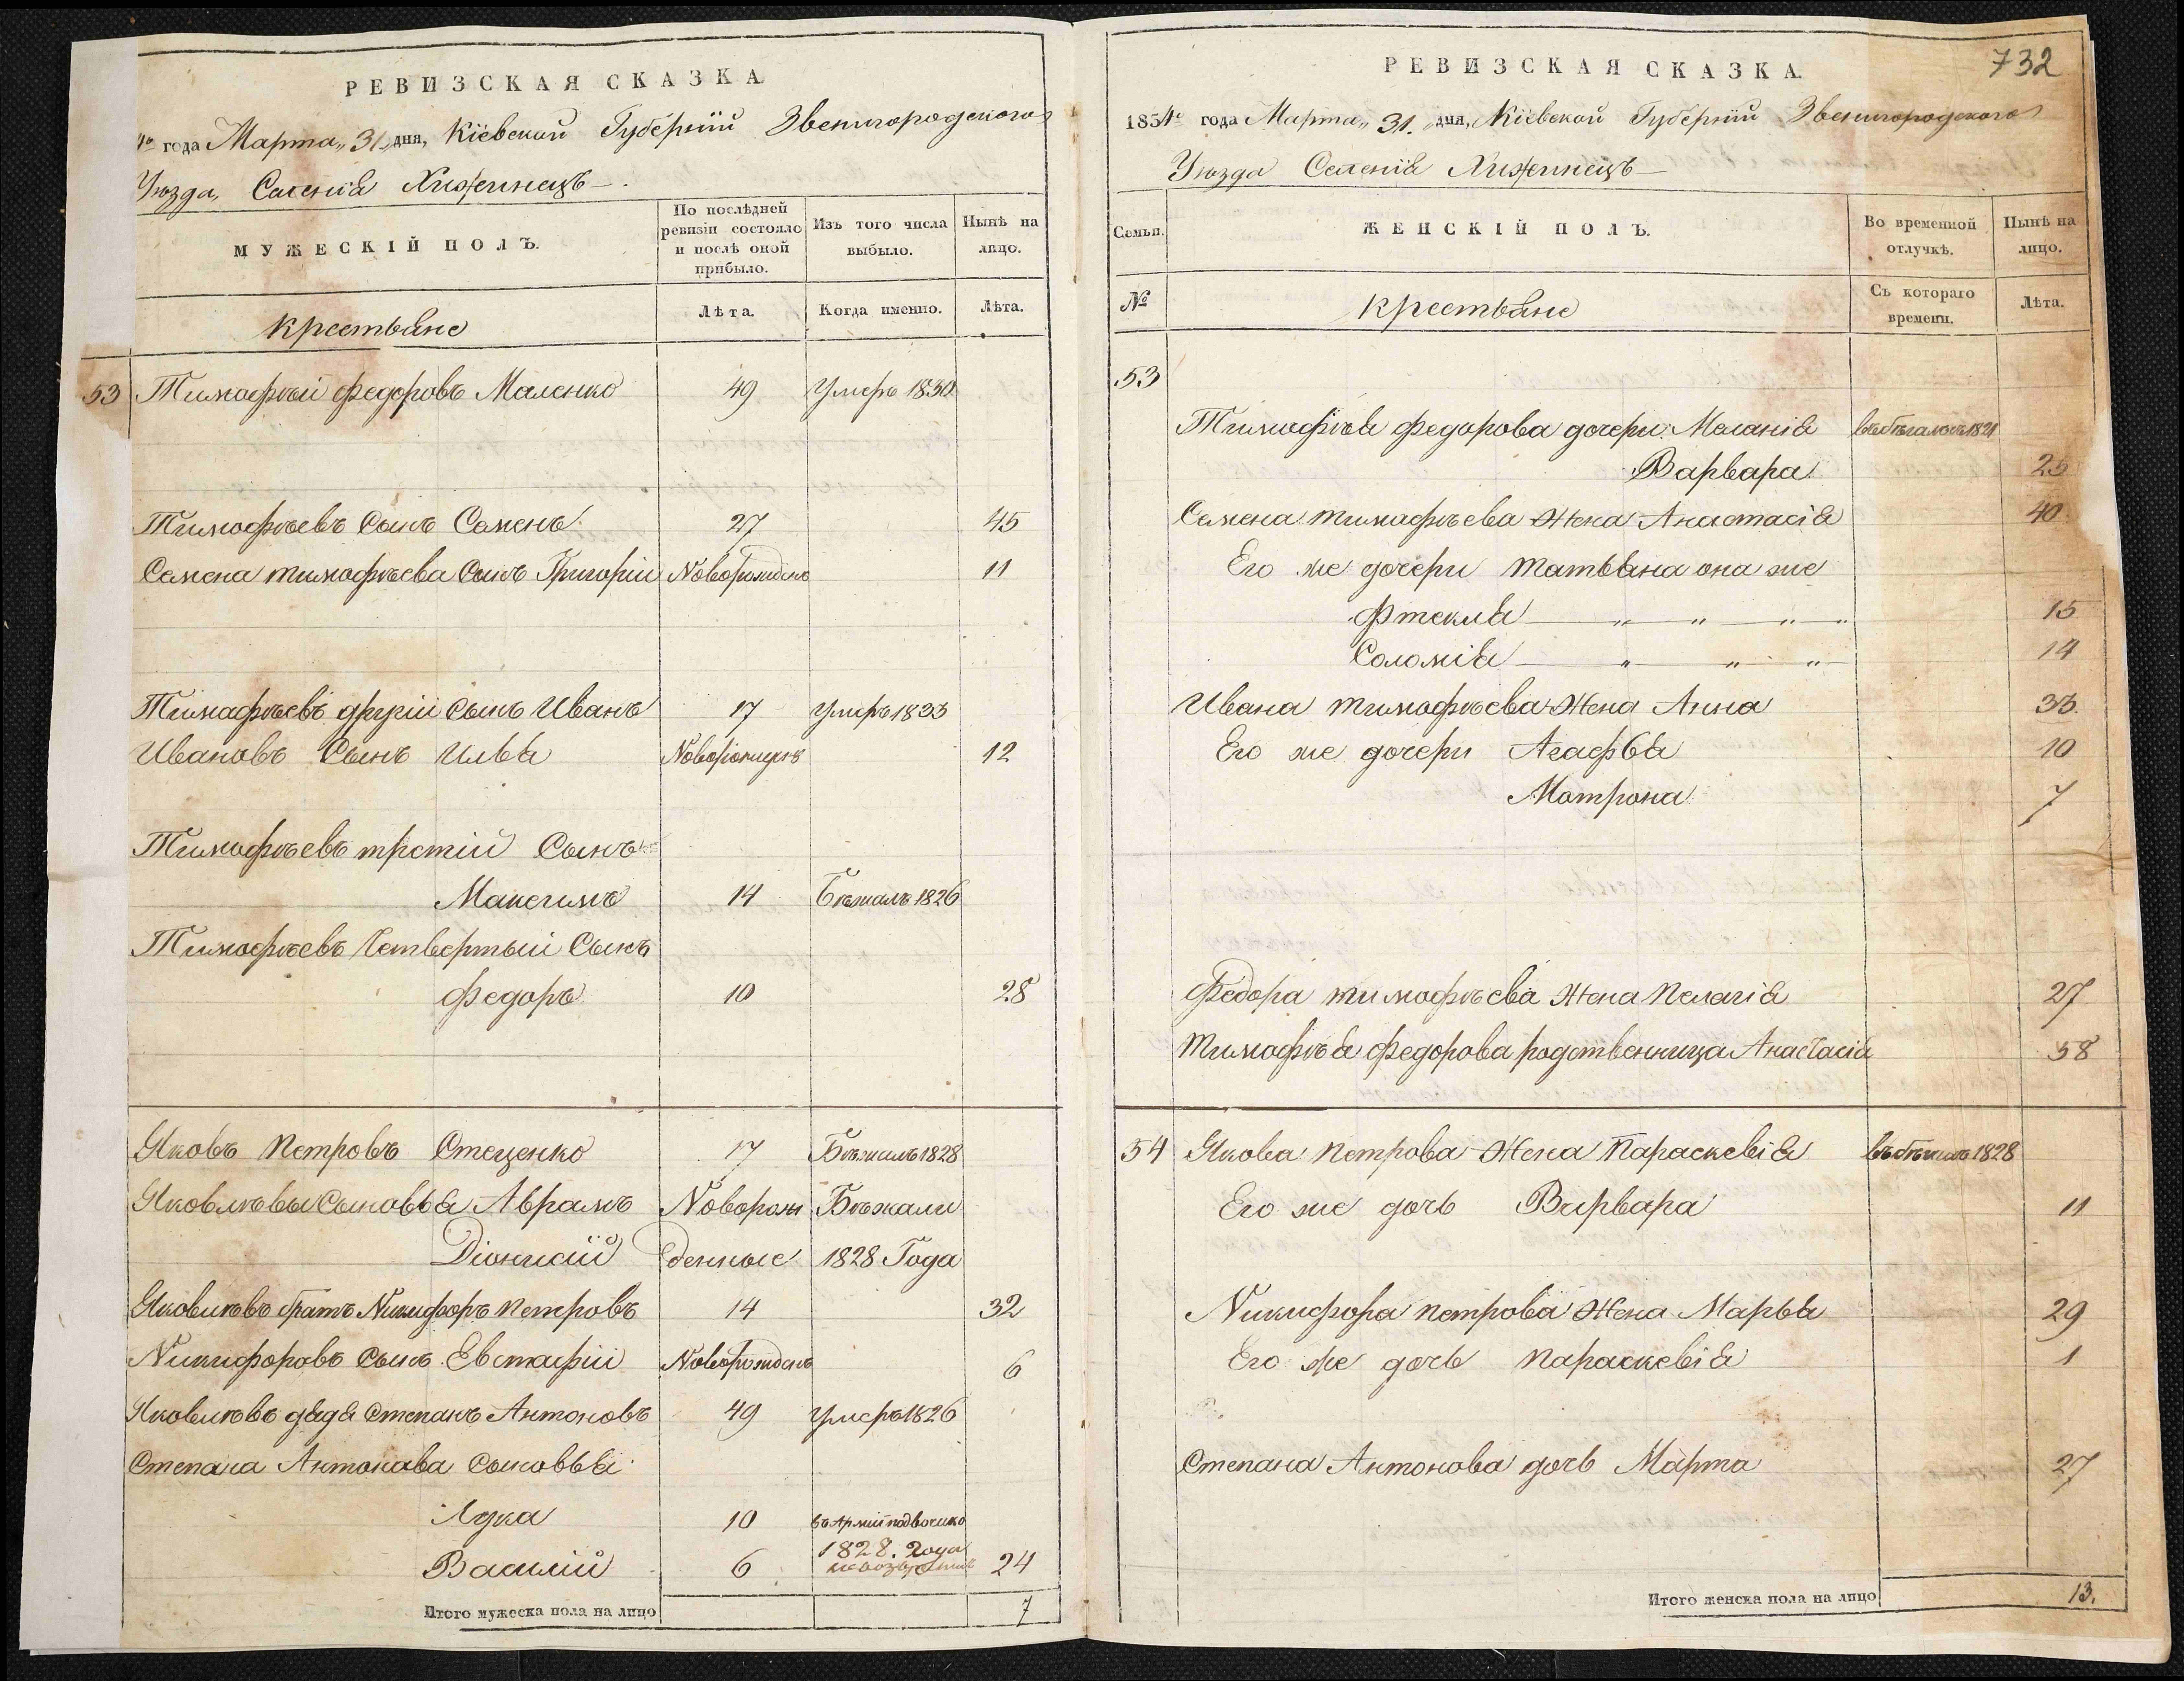 РЕВИЗСКАЯ СКАЗКА
4го года Марта „31„ дня, Кіевской Губерніи Звенигородского
Уѣзда, Селенія Хиженнецъ
МУЖЕСКІЙ ПОЛЪ.
По послѣдней ревизіи состояло и послѣ оной прибыло.
Изъ того числа выбыло.
Нынѣ на лицо.
Крестьяне
Лѣта. Когда именно. Лѣта.
53 Тимофѣй Федоровъ Маленко 49 Умеръ 1830
Тимофѣевъ Сынъ Семенъ 27 45
Семена Тимофѣева Сынъ Григорій Новорожденъ 11
Тимофѣевъ другій Сынъ Иванъ 17 Умеръ 1833
Ивановъ Сынъ Илья Новорожденъ 12
Тимофѣевъ третій Сынъ
Максимъ 14 Бѣжалъ 1826
Тимофѣевъ Четвертый Сынъ
Федоръ 10 28
Яковъ Петровъ Стеценко 17 Бѣжалъ 1828
Яковлѣвы Сыновья АврамъНоворож Бѣжали
Діонисій денные 1828 Года
Яковлѣвъ братъ Никифоръ Петровъ 14 32
Никифоровъ Сынъ Евстафій Новорожденъ 6
Яковлѣвъ дядя Степанъ Антоновъ 49 Умеръ 1826
Степана Антонава Сыновья
Лука 10 въ Арміи подвочико
Василій 6 1828. года 24
Итого мужеска пола на лицо 7
732
РЕВИЗСКАЯ СКАЗКА.
1834го года Марта „31.„ дня, Кіевской Губерніи Звенигородского
Уѣзда Селенія Хиженнецъ
Семьи. ЖЕНСКІЙ ПОЛЪ.
Во временной отлучкѣ.
Нынѣ на лицо.
№ Крестьяне
Съ котораго времени. Лѣта.
53
Тимофѣя Федорова дочери: Меланія 1821
Варвара 25
Семена Тимофѣева Жена Анастасія 40
Его же дочери Татьяна она же
Фтекля — „ — „ — „ — „ 15
Соломія — „ — „ — „ 14
Ивана Тимофѣева Жена Анна 33.
Его же дочери Агафья 10
Мотрона 7
Федора Тимофѣева Жена Пелагія 27
Тимофѣя Федорова родственница Анастасія 58
54 Якова Петрова Жена Параскевія въ бѣгахъ 1828
Его же дочь Варвара 11
Никифора Петрова Жена Марья 29
Его же дочь Параскевія 1
Степана Антонова дочь Марта 27
Итого женска пола на лицо 13.